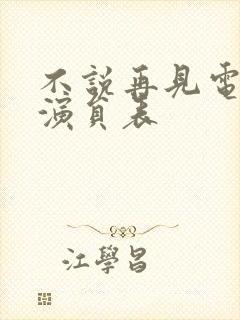 不說再見電
演員表
江學昌